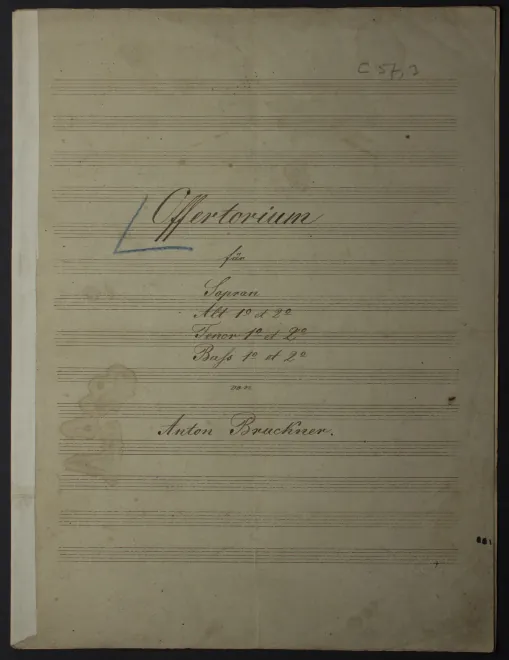 C 57,3
Offertorium
für
Sopran
Alt 1º et 2º
Tenor 1º et 2º
Bass 1º et 2º
von
Anton Bruckner.